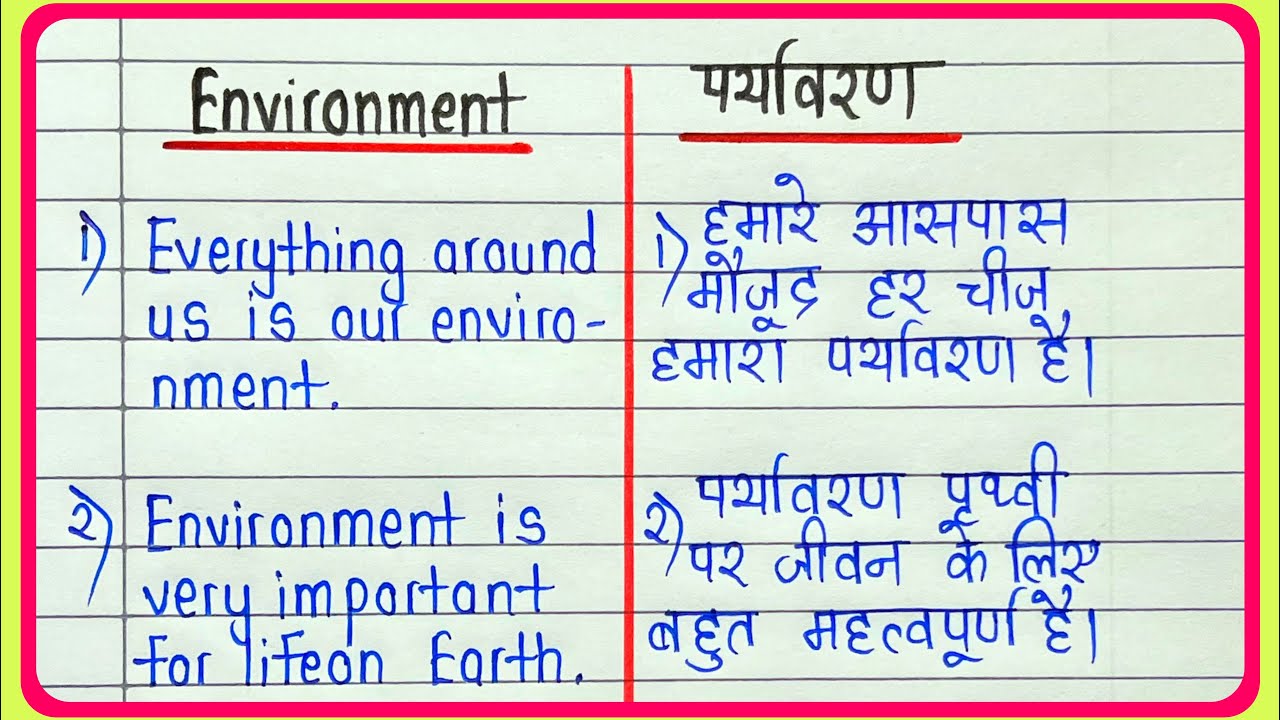 Environment
1) Everything around
us is our enviro-
nment.
2) Environment is
very important
for lifeon Earth.
पर्यावरण
1) हमारे आसपास
मौजूद हर चीज
हमारा पर्यावरण है।
2) पर्यावरण पृथ्वी
पर जीवन के लिए
बहुत महत्वपूर्ण है।